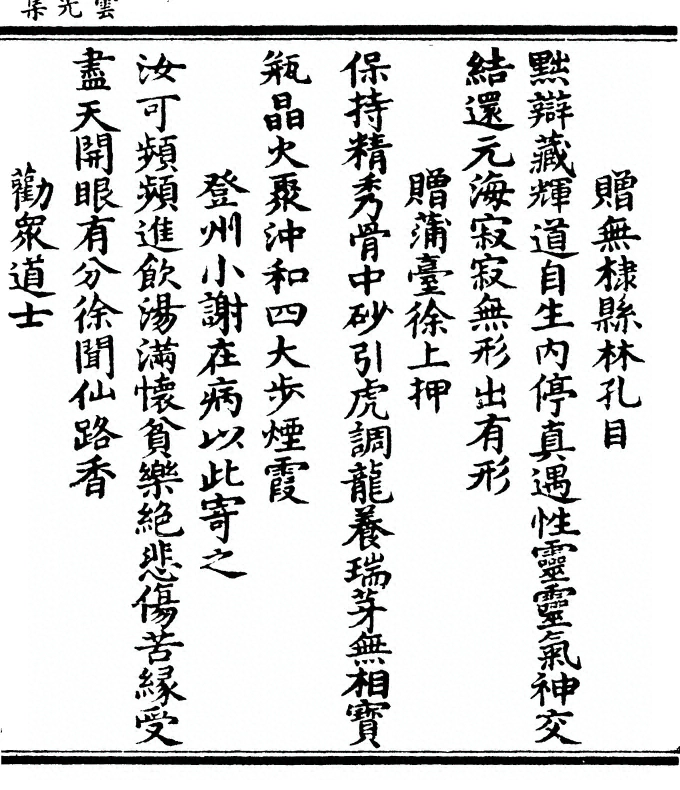 雲光集
贈無棣縣林孔目
黜辯藏輝道自生內停真遇性靈靈氣神交
結還元海寂寂無形出有形
贈蒲臺徐上押
保持精秀骨中砂引虎調龍養瑞芽無相寶
瓶晶火聚沖和四大步煙霞
登州小謝在病以此寄之
汝可頻頻進飲湯滿懷貧樂絕悲傷苦緣受
盡天開眼有分徐聞仙路香
勸眾道士